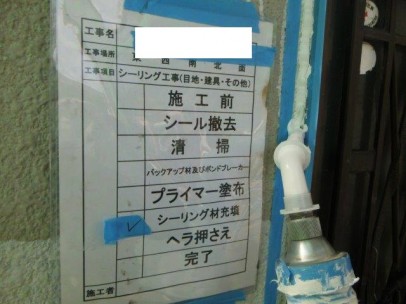 工事名
工事場所 東 西 南 北 面
工事項目 シーリング工事(目地・建具・その他)
施工前
シール撤去
清掃
バックアップ材及びボンドブレーカー
プライマー塗布
✓ シーリング材充填
ヘラ押さえ
完了
施工者